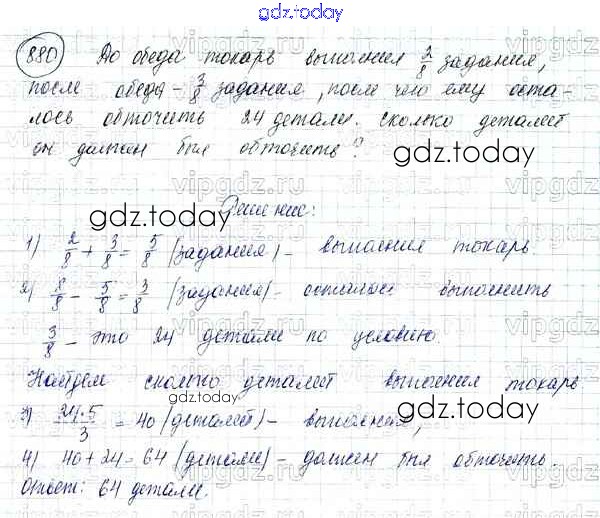 gdz.today
880 До обеда токарь выполнил 2/8 задания,
после обеда - 3/8 задания, после чего ему оста-
лось обточить 24 детали. Сколько деталей
он должен был обточить?
gdz.today
Решение:
gdz.today
1) 2/8 + 3/8 = 5/8 (задания) - выполнил токарь.
2) 8/8 - 5/8 = 3/8 (задания) - осталось выполнить
3/8 - это 24 детали по условию.
gdz.today
Найдем сколько деталей выполнил токарь
3) 24·5/3 = 40 (деталей) - выполнил,
gdz.today
4) 40 + 24 = 64 (детали) - должен был обточить.
Ответ: 64 детали.